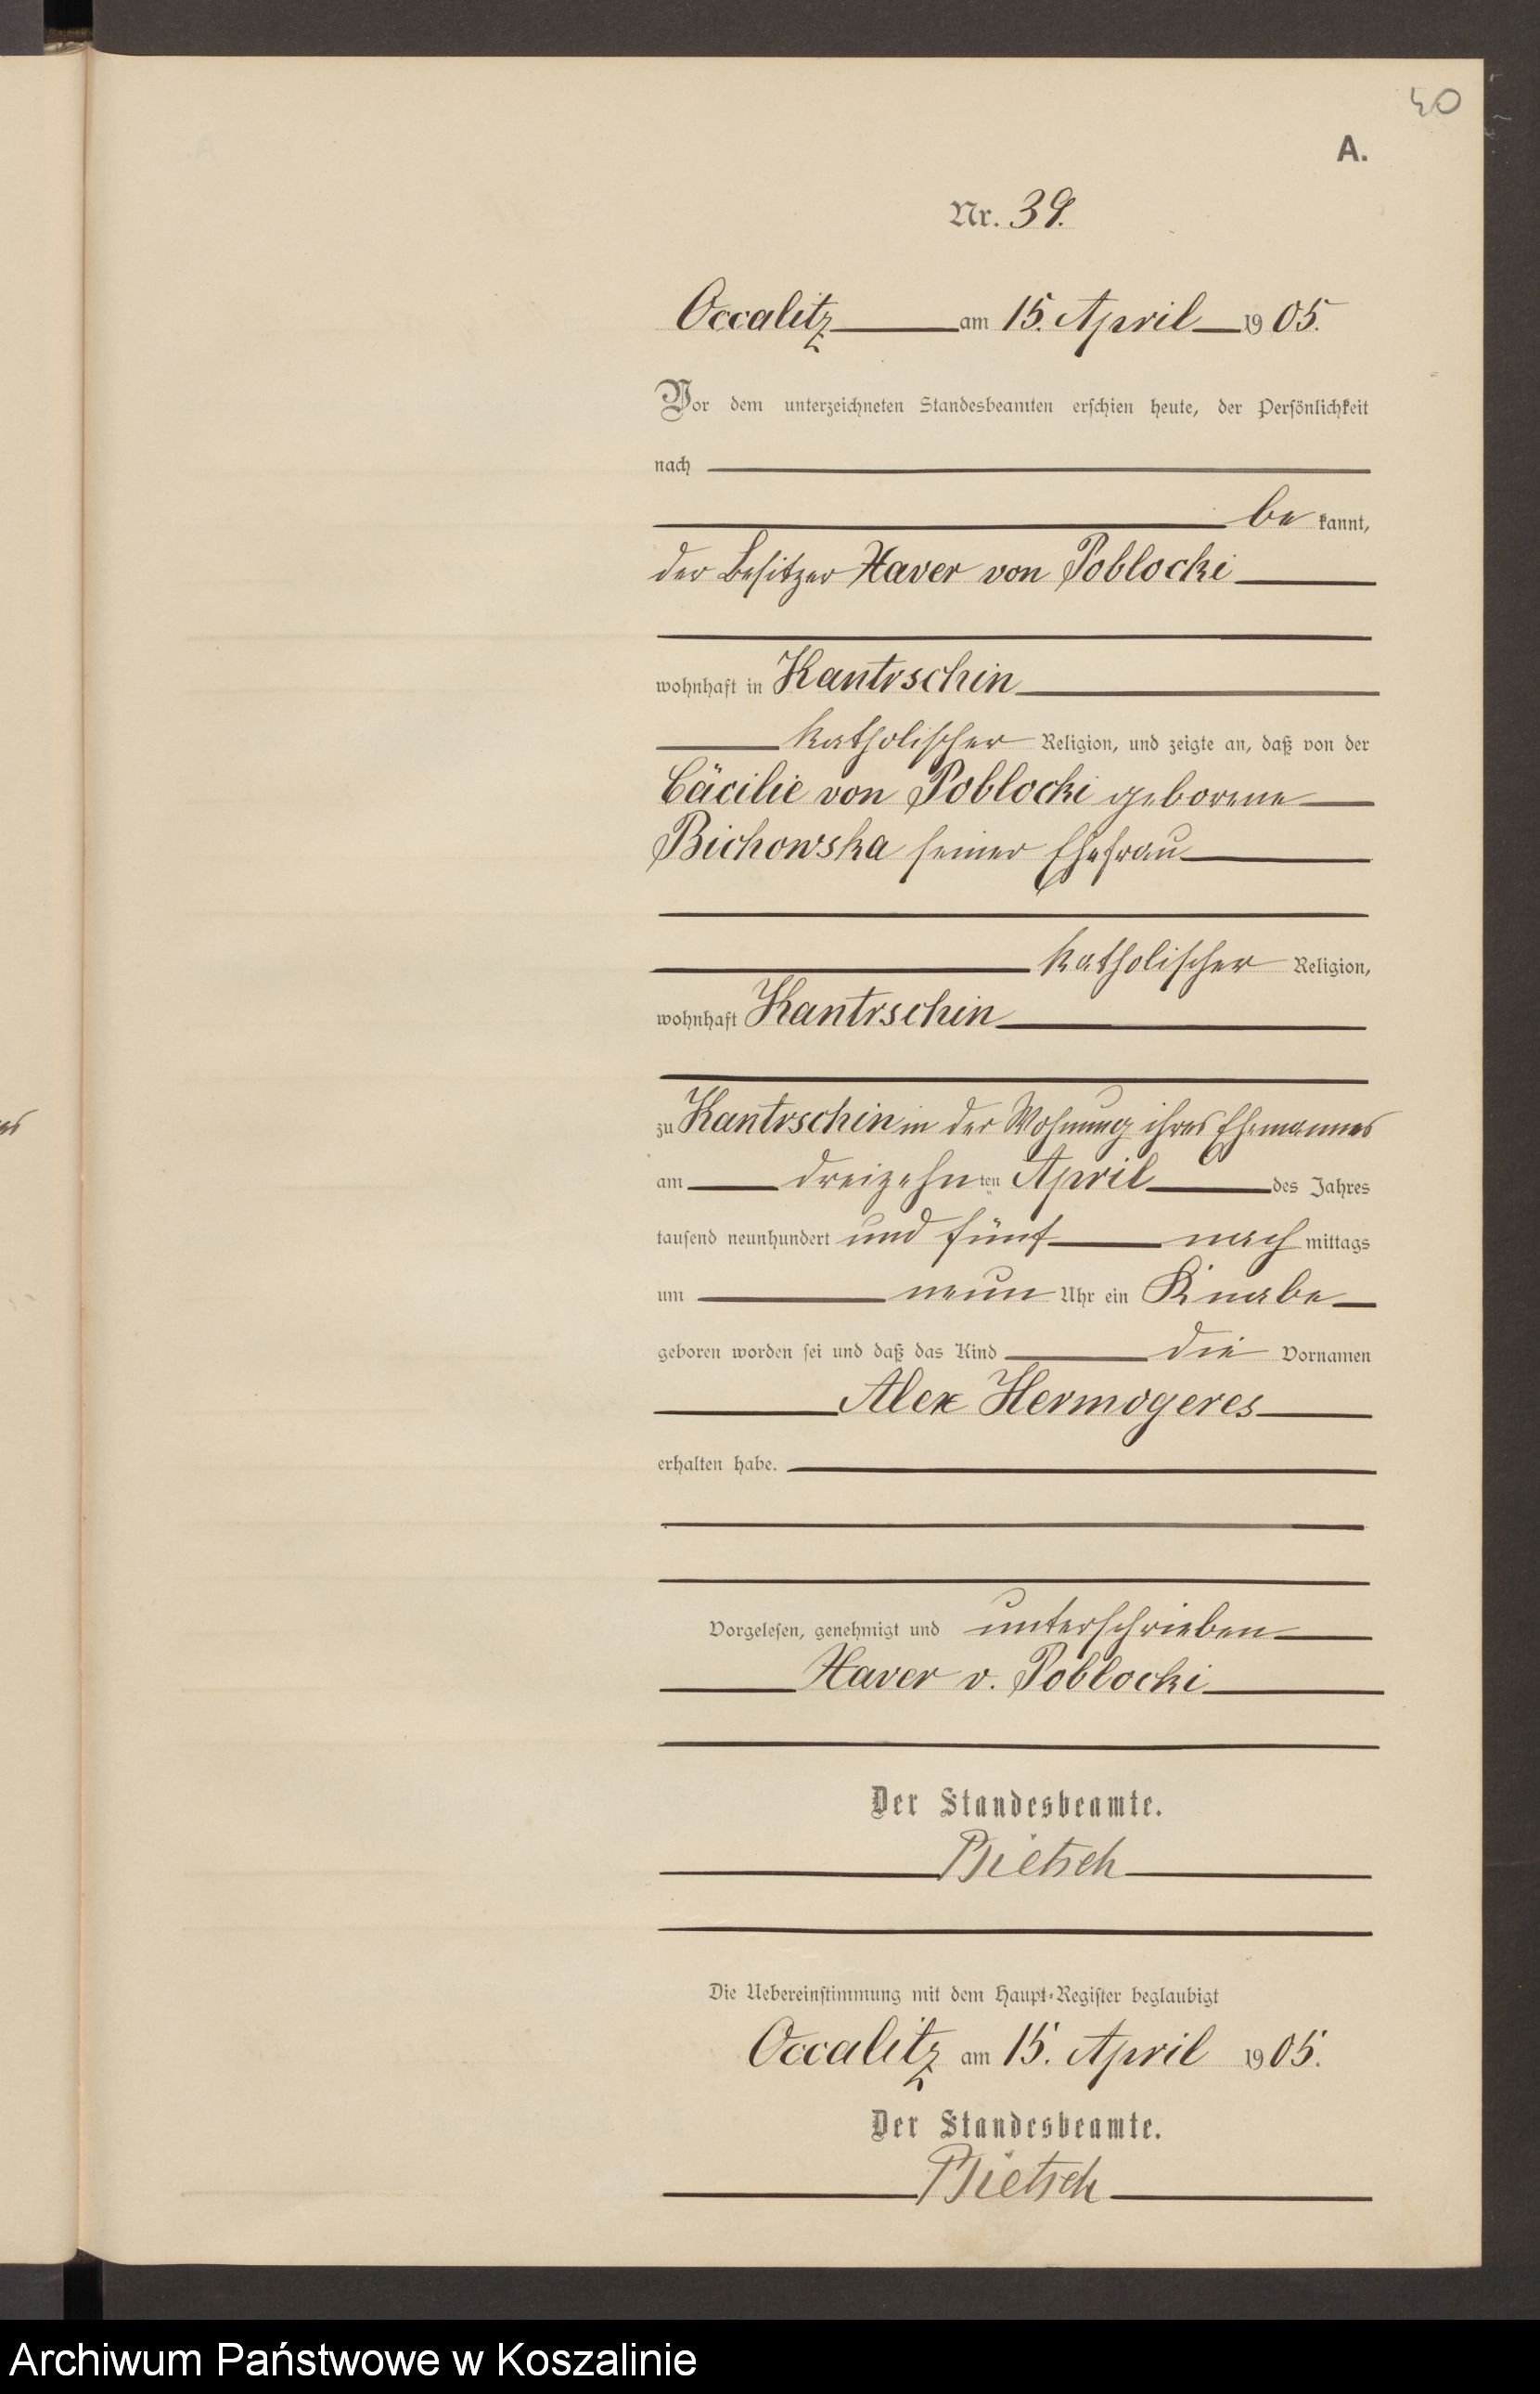 40
A.
Nr. 39.
Occalitz am 15. April 1905.
Vor dem unterzeichneten Standesbeamten erschien heute, der Persönlichkeit
nach
be kannt,
der Besitzer Xaver von Poblocki
wohnhaft in Kantrschin
katholischer Religion, und zeigte an, daß von der
Cäcilie von Poblocki geborene
Bichowska seiner Ehefrau
katholischer Religion,
wohnhaft Kantrschin
zu Kantrschin in der Wohnung ihres Ehemannes
am dreizehn ten April des Jahres
tausend neunhundert und fünf nach mittags
um neun Uhr ein Knabe
geboren worden sei und daß das Kind die Vornamen
Alex Hermogeres
erhalten habe.
Vorgelesen, genehmigt und unterschrieben
Xaver v. Poblocki
Der Standesbeamte.
Bietsch
Die Uebereinstimmung mit dem Haupt-Register beglaubigt
Occalitz am 15. April 1905.
Der Standesbeamte.
Bietsch
Archiwum Państwowe w Koszalinie